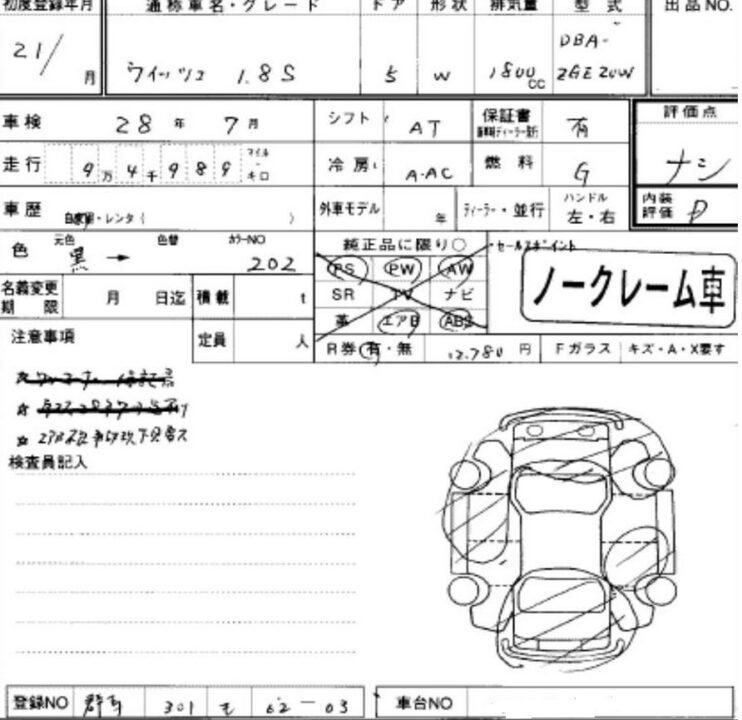 初度登録年月 通称車名・グレード ドア 形状 排気量 型式 出品NO.
21/ 月 ウィッシュ 1.8S 5 W 1800cc DBA-ZGE20W
車検 28年 7月 シフト AT 保証書 有 評価点
走行 9万4千989 マイル キロ 冷房 A-AC 燃料 G ナシ
車歴 自家用・レンタ( ) 外車モデル 年 ディーラー・並行 ハンドル 左・右 内装評価 D
色 元色 黒 → 色替 カラーNO 202 純正品に限り○ セールスポイント
PS PW AW ノークレーム車
名義変更期限 月 日迄 積載 t SR TV ナビ
革 エアB ABS
注意事項 定員 人 R券 有・無 12,780円 Fガラス キズ・A・X要す
検査員記入
登録NO 群馬 301 モ 62-03 車台NO